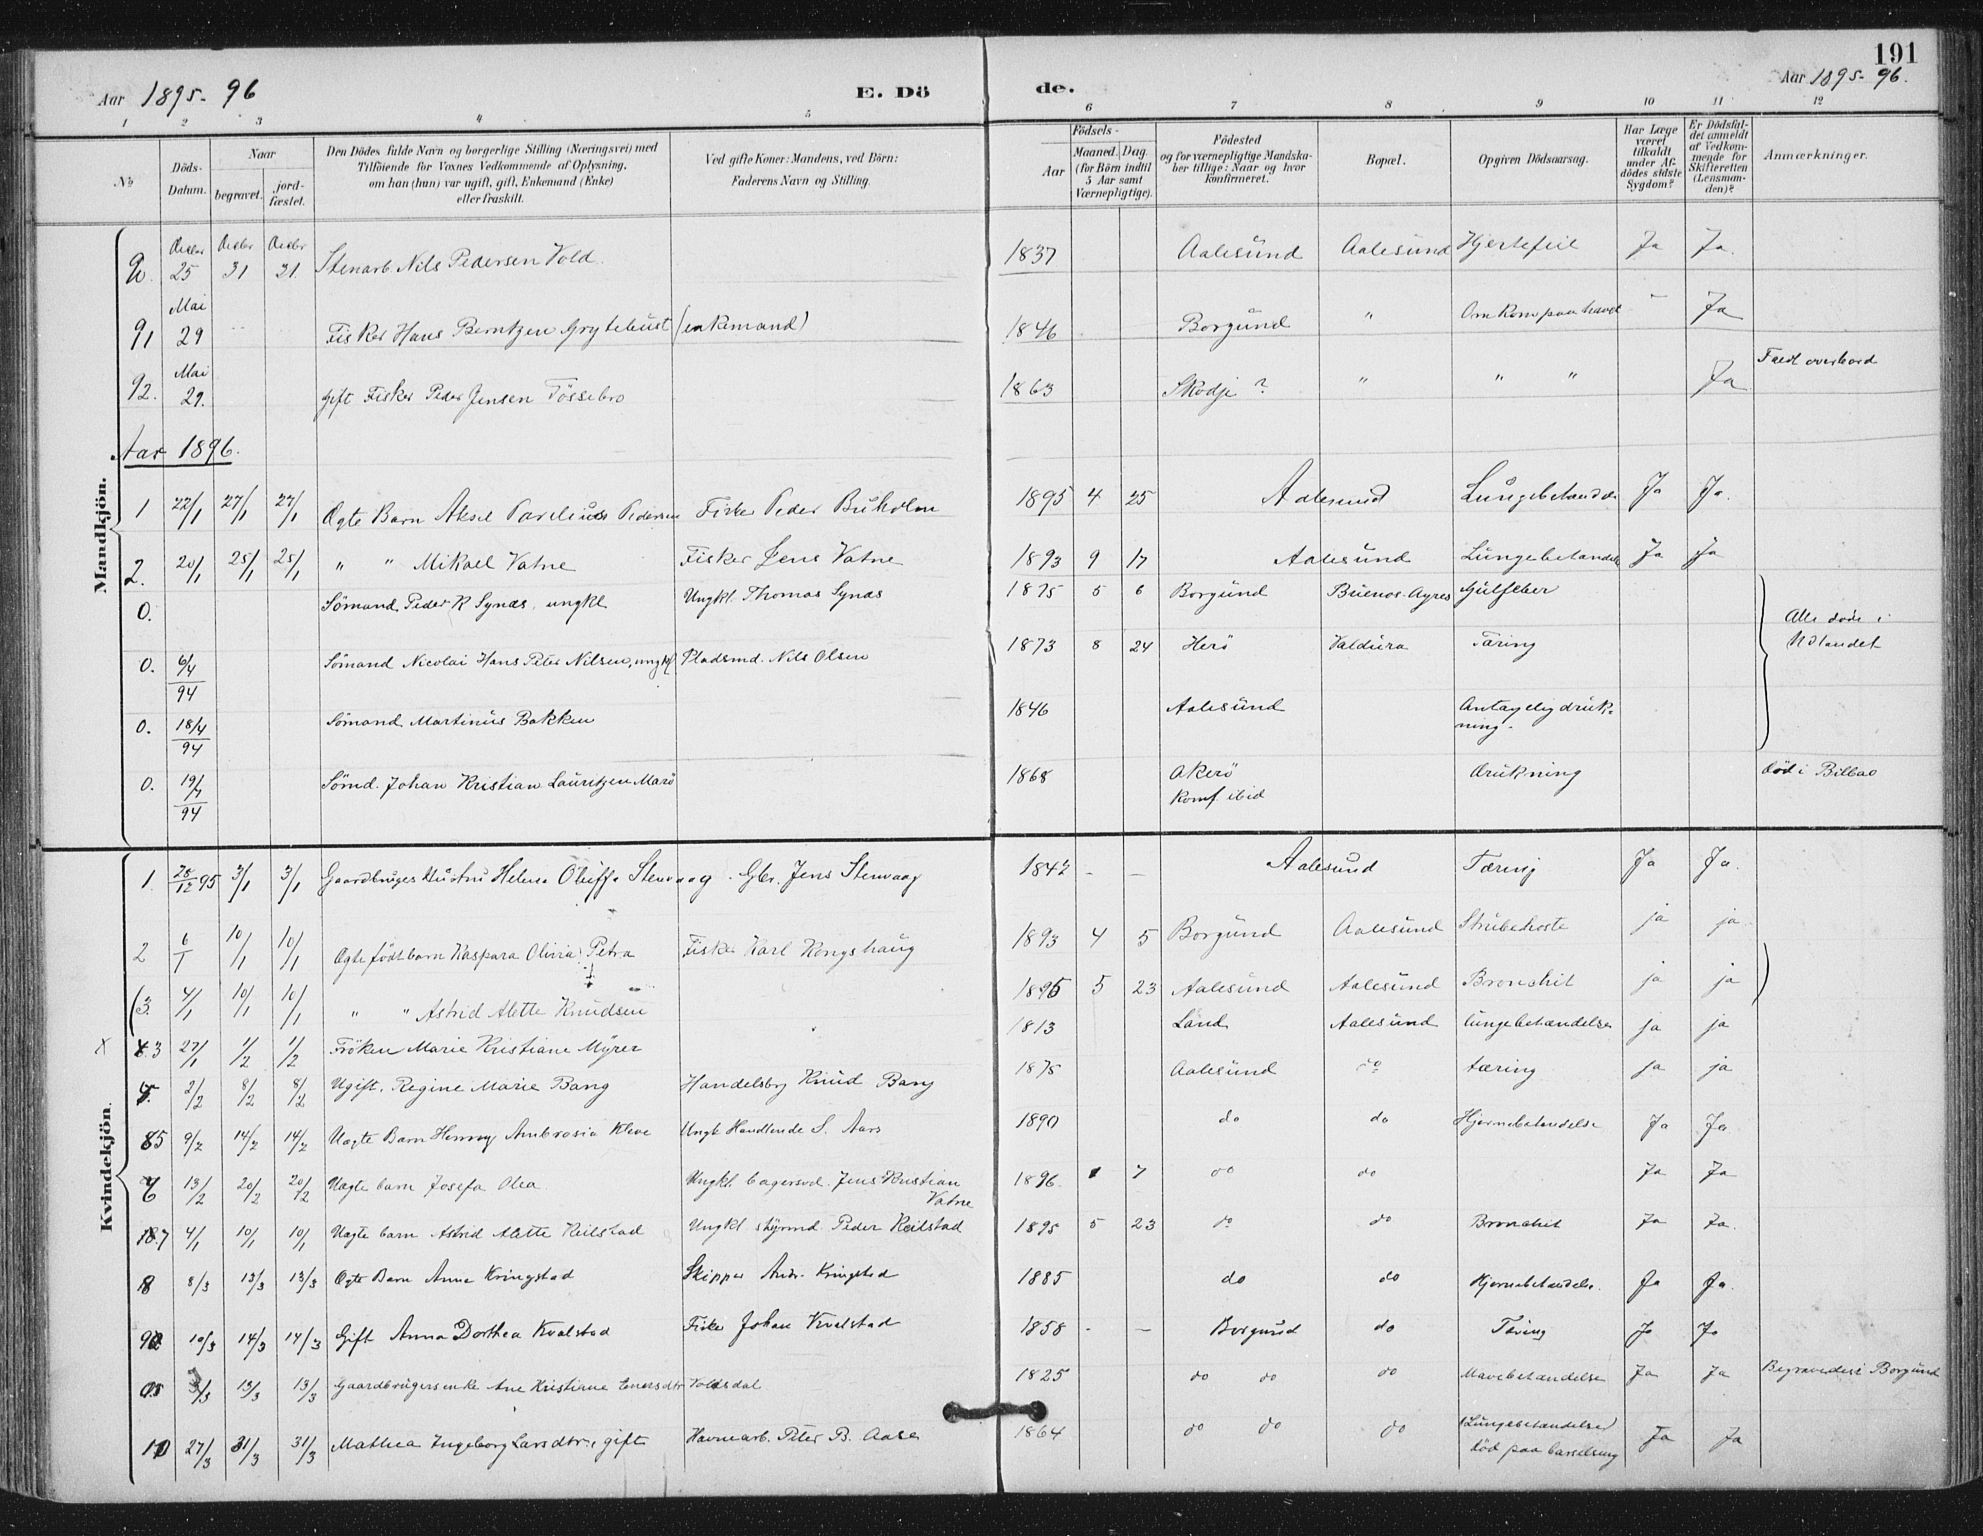 191
Aar 1895-96
E. Dö
de.
Aar 1895-96.
1 2 3 4 5 6 7 8 9 10 11 12
No
Döds-Datum.
Naar
begravet.
jord-fæstet.
Den Dödes fulde Navn og borgerlige Stilling (Næringsvei) med
Tilföiende for Voxnes Vedkommende af Oplysning,
om han (hun) var ugift, gift, Enkemand (Enke)
eller fraskilt.
Ved gifte Koner: Mandens, ved Börn:
Faderens Navn og Stilling.
Födsels-
Aar
Maaned. Dag
(for Börn indtil
5 Aar samt
Værnepligtige).
Födested
og for værnepligtige Mandska-
ber tillige: Naar og hvor
konfirmeret.
Bopæl.
Opgiven Dödsaarsag.
Har Læge
været
tilkaldt
under Af-
dödes sidste
Sygdom?
Er Dödsfal-
det anmeldt
af Vedkom-
mende for
Skifteretten
(Lensman-
den)?
Anmærkninger.
Mandkjön.
90. Decbr 25 Decbr 31 Decbr 31. Stenarb Nils Pedersen Vold. 1837 Aalesund Aalesund Hjertefeil Ja Ja.
91 Mai 29 Fisker Hans Berntzen Grytehust (enkemand) 1846 Borgund " Omkom paa havet - Ja
92. Mai 29. gift Fisker Peder Jensen Tössebro 1863 Skodje ? " " " Ja Faldt overbord
Aar 1896.
1 22/1 27/1 27/1 Ægte Barn Aksel Parelius Pedersen Fisker Peder Buholm 1895 4 25 Aalesund Lungebetændelse Ja Ja.
2. 20/1 25/1 25/1 " " Mikael Vatne Fisker Jens Vatne 1893 9 17 Aalesund Lungebetændelse Ja Ja
0. Sömand Peder K Synæs, ungkl Ungkl. Thomas Synæs 1875 5 6 Borgund Buenos-Ayres Gulfeber
Alle döde i
Udlandet
0. 6/4 94 Sömand Nicolai Hans Peter Nilsen, ungkl Pladsmd. Nils Olsen 1873 8 24 Herö Valdura Tæring
0. 18/4 94 Sömand Martinus Bakken 1846 Aalesund Antagelig druk-
ning.
0. 19/4 94 Sömd. Johan Kristian Lauritzen Marö 1868 Akerö
Konf. ibid
Drukning död i Bilbao
Kvindekjön.
1. 28/12 95 3/1 3/1 Gaardbruger Hustru Helena Oluffa Stenvaag. Gbr. Jens Stenvaag 1842 - - Aalesund Tæring Ja Ja.
2 6/1 10/1 10/1 Ægte född barn Kaspara Olivia Petra Fisker Karl Kongshaug 1893 4 5 Borgund Aalesund Strubehoste ja ja
(3. 4/1 10/1 10/1 " " Astrid Alette Knudsen 1895 5 23 Aalesund Aalesund Bronchit ja ja )
x 3 27/1 1/2 1/2 Fröken Marie Kristiane Myrer 1813 Land Aalesund lungebetændelse ja ja
2/2 8/2 8/2 Ugift. Regine Marie Bang Handelsbg Knud Bang 1875 Aalesund do tæring ja ja
5 9/2 14/2 14/2 Uægte Barn Henny Ambrosia Kleve Ungk Handlende S. Aars 1890 do do Hjernebetændelse Ja Ja
6 13/2 20/2 20/2 Uægte barn Josefa Olea Ungkl. bagersvd. Jens Kristian
Vatne
1896. 7 do do Ja Ja
7 4/1 10/1 10/1 Uægte barn Astrid Alette Reilstad Ungkl. styrmd. Peder Reilstad 1895 5 23 do do Bronchit Ja Ja.
8 8/3 13/3 13/3 Ægte Barn Anna Kringstad Skipper Andr. Kringstad 1885 do do Hjernebetændelse. Ja Ja.
9 10/3 14/3 14/3 Gift Anna Dorthea Kvalstad Fisker Johan Kvalstad 1858 - - Borgund do Tæring Ja Ja
3/3 13/3 13/3 Gaardbrugersenke Ane Kristiane Enersdtr Voldsdal 1825 do do do Mavebetændelse Ja Ja Begravedes i Borgund
10 27/3 31/3 31/3 Mathea Ingeborg Larsdtr. gift Havnearb. Peter B. Aase 1864 do do do (Lungebetændelse)
död paa barselseng Ja Ja